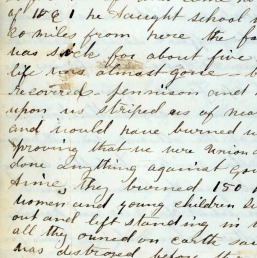 of 1861 he taught school
20 miles from here the
was sick for about five
life was almost gone
recovered Jennison and
upon us striped us of
and would have burned
proving that we were Union
done anything against
time, they burned 150
women and young children
out and left standing in
all they owned on earth
was destroyed before